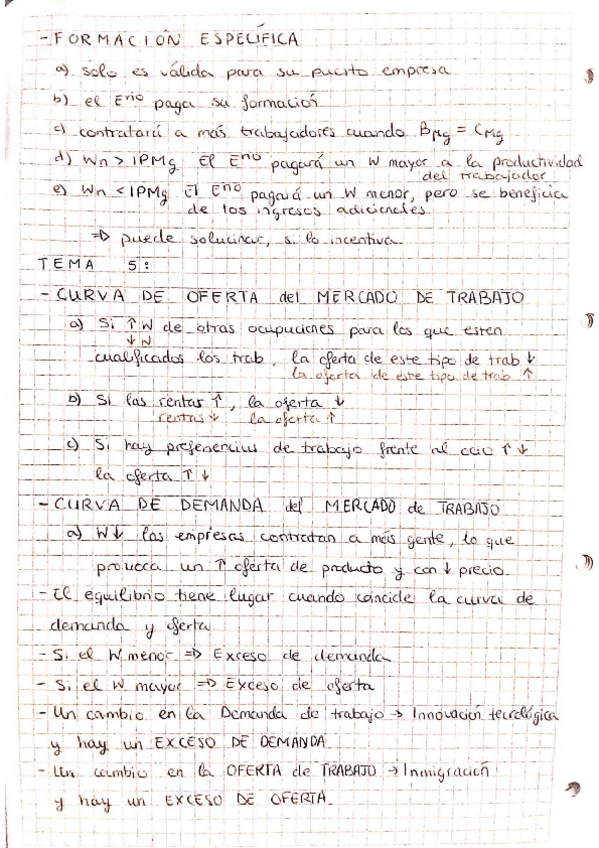 - FORMACIÓN ESPECÍFICA
a) solo es válida para su puesto empresa
b) el Eʳⁱᵒ paga su formación
c) contratará a más trabajadores cuando BMg = CMg
d) Wn > IPMg El Eⁿᵒ pagará un W mayor a la productividad
del trabajador
e) Wn < IPMg El Eⁿᵒ pagará un W menor, pero se beneficia
de los ingresos adicionales.
=> puede solucinar, si lo incentiva
TEMA 5:
- CURVA DE OFERTA del MERCADO DE TRABAJO
a) Si ↑W de otras ocupaciones para los que esten
↓W
cualificados los trab, la oferta de este tipo de trab ↓
la oferta de este tipo de trab ↑
b) Si las rentas ↑, la oferta ↓
rentas ↓ la oferta ↑
c) Si hay preferencias de trabajo frente al ocio ↑↓
la oferta ↑↓
- CURVA DE DEMANDA del MERCADO de TRABAJO
a) W↓ las empresas contratan a más gente, lo que
provoca un ↑ oferta de producto y con ↓ precio.
- El equilibrio tiene lugar cuando coincide la curva de
demanda y oferta
- Si el W menor => Exceso de demanda
- Si el W mayor => Exceso de oferta
- Un cambio en la Demanda de trabajo → Innovación tecnológica
y hay un EXCESO DE DEMANDA
- Un cambio en la OFERTA de TRABAJO → Inmigración
y hay un EXCESO DE OFERTA.